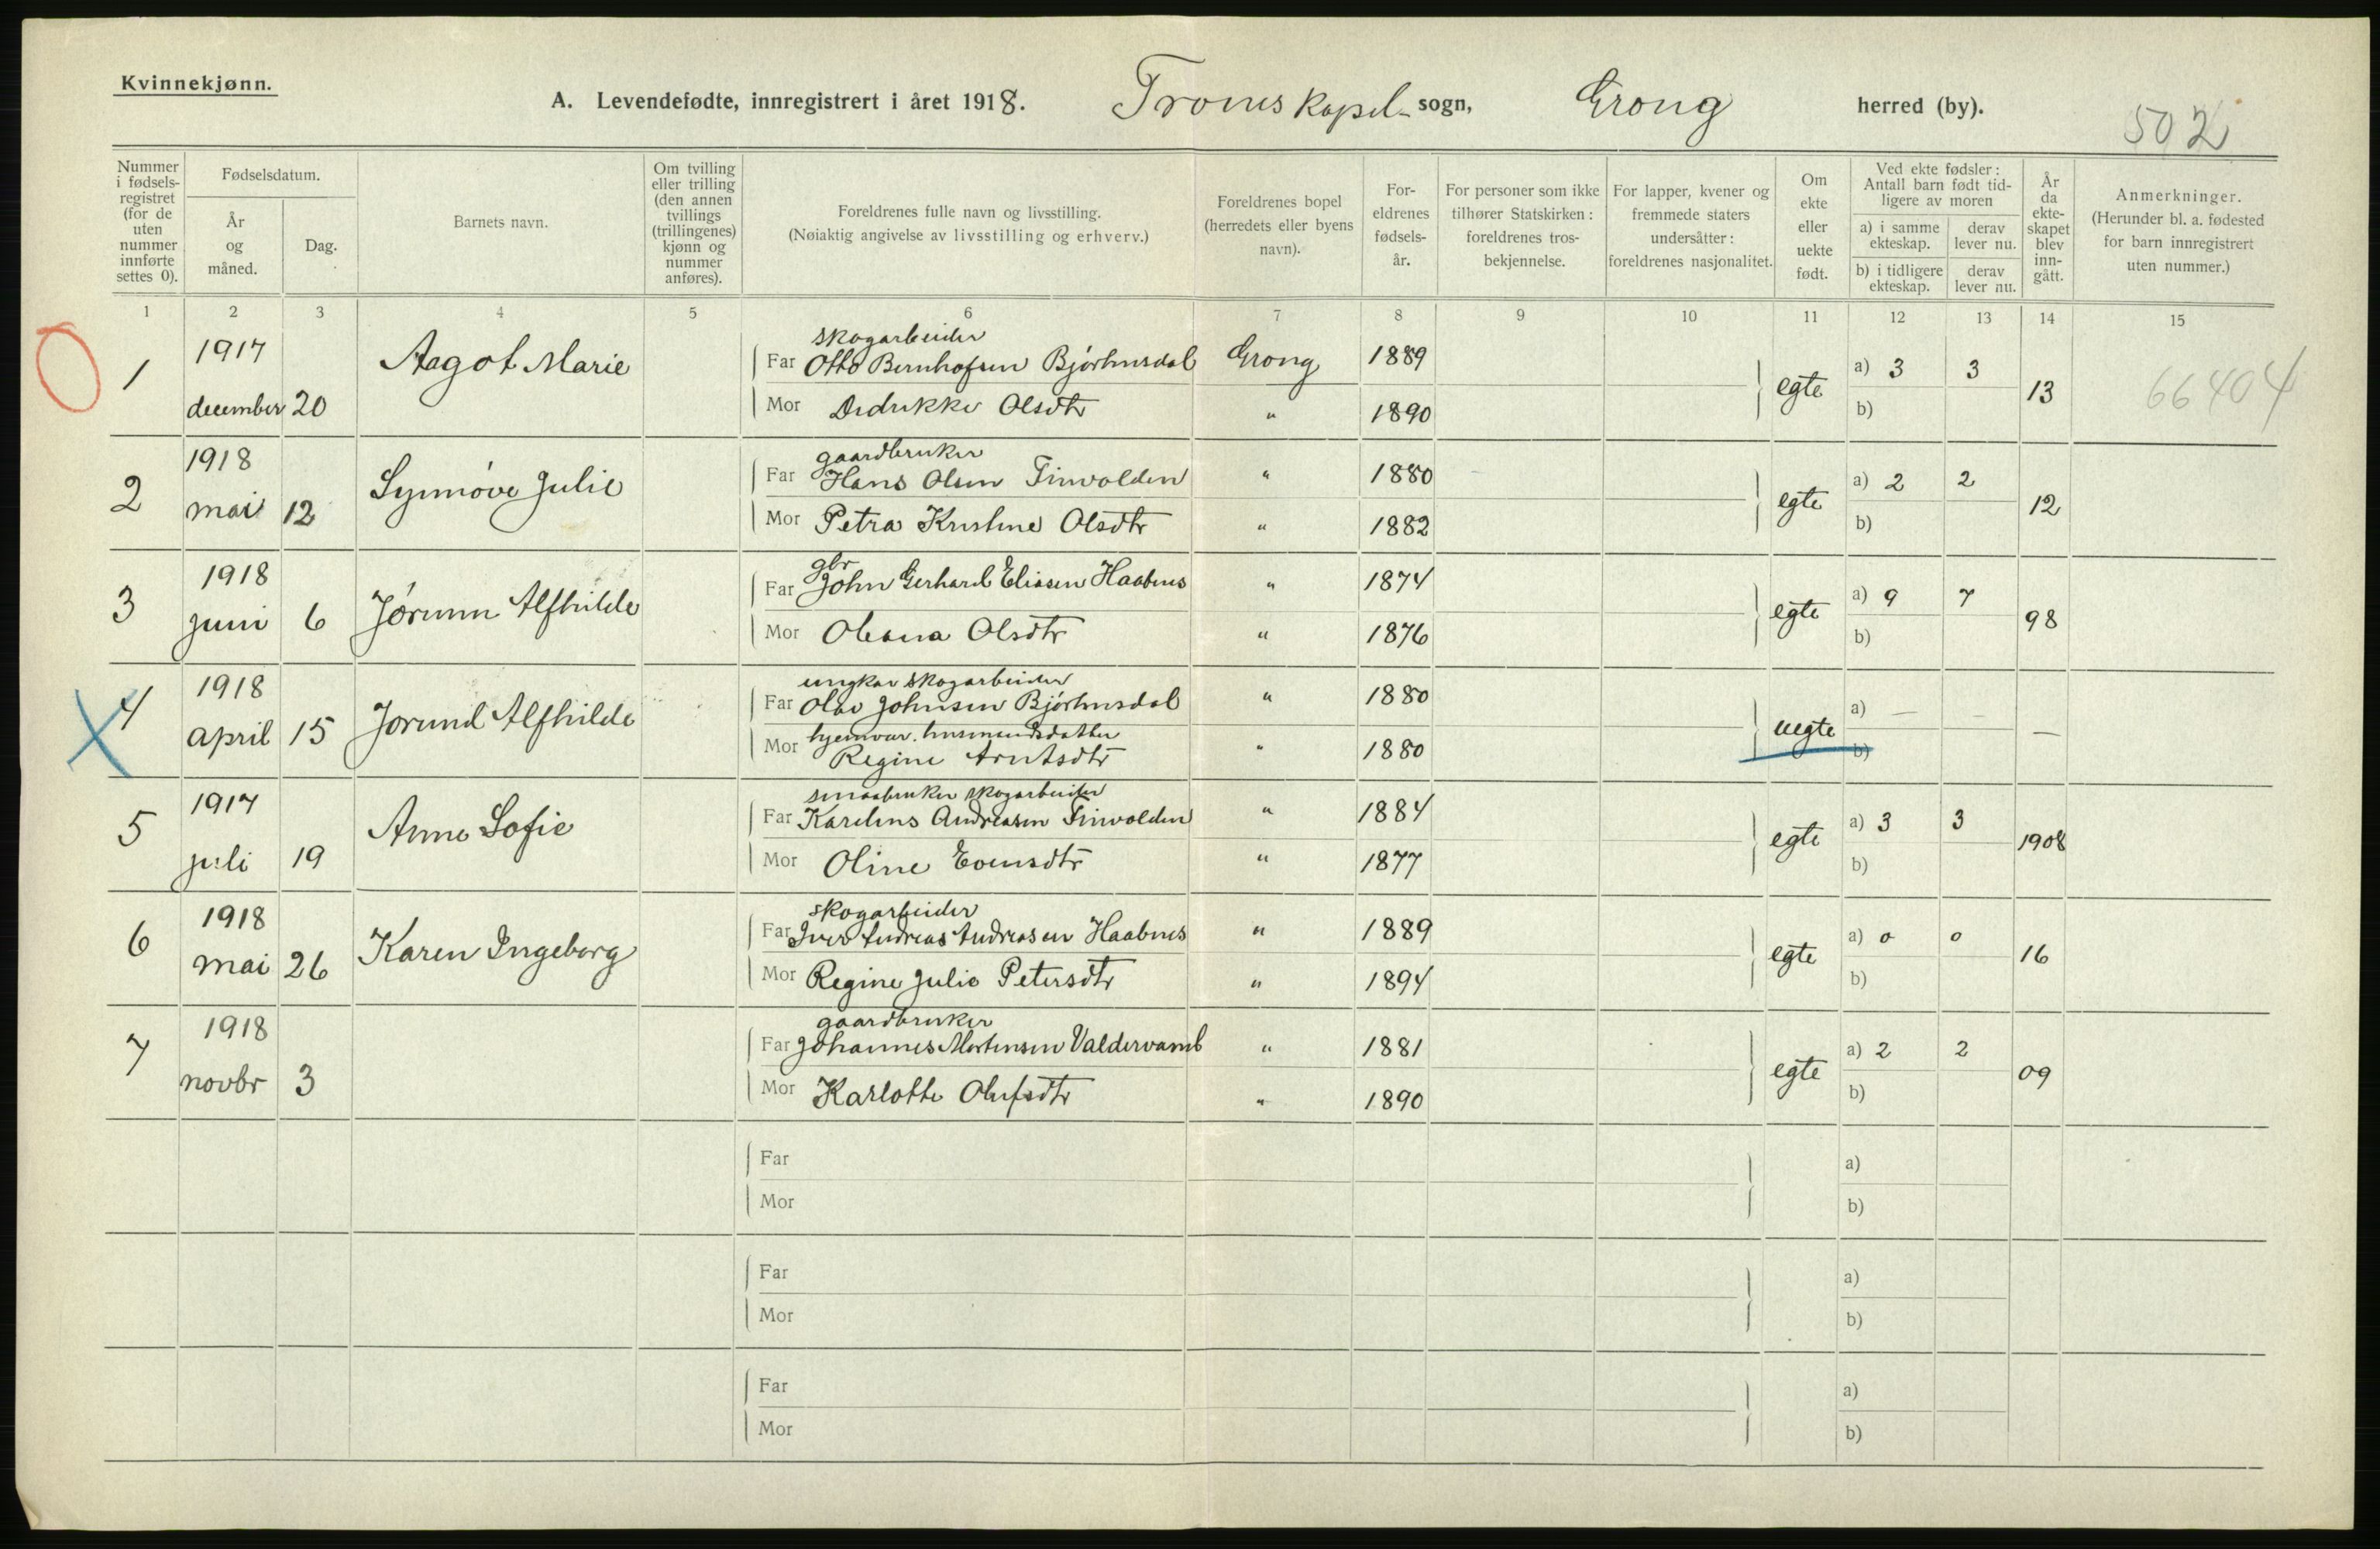 Kvinnekjønn.
A. Levendefødte, innregistrert i året 1918. Trones kapel- sogn, Grong herred (by).
502
Nummer i fødsels-registret (for de uten nummer innførte settes 0).
Fødselsdatum.
År og måned.
Dag.
Barnets navn.
Om tvilling eller trilling (den annen tvillings (trillingenes) kjønn og nummer anføres).
Foreldrenes fulle navn og livsstilling.
(Nøiaktig angivelse av livsstilling og erhverv.)
Foreldrenes bopel (herredets eller byens navn).
For-eldrenes fødsels-år.
For personer som ikke tilhører Statskirken: foreldrenes tros-bekjennelse.
For lapper, kvener og fremmede staters undersåtter: foreldrenes nasjonalitet.
Om ekte eller uekte født.
Ved ekte fødsler: Antall barn født tid-ligere av moren
a) i samme ekteskap.
derav lever nu.
b) i tidligere ekteskap.
derav lever nu.
År da ekte-skapet blev inn-gått.
Anmerkninger.
(Herunder bl. a. fødested for barn innregistrert uten nummer.)
1 2 3 4 5 6 7 8 9 10 11 12 13 14 15
skogarbeider
1 1917 december 20 Aagot Marie
Far Otto Bernhofsen Bjørhusdal Grong 1889
Mor Didrikke Olsdtr " 1890
egte a) 3 3 b) 13
66404
gaardbruker
2 1918 mai 12 Synnøve Julie
Far Hans Olsen Finvolden " 1880
Mor Petra Kristine Olsdtr " 1882
egte a) 2 2 b) 12
gbr
3 1918 juni 6 Jørunn Alfhilde
Far John Gerhard Eliasen Haabnes " 1874
Mor Oleana Olsdtr " 1876
egte a) 9 7 b) 98
ungkar skogarbeider
4 1918 april 15 Jorund Alfhilde
Far Olav Johnsen Bjørhusdal " 1880
hjemvær. husmandsdatter
Mor Regine Arntsdtr " 1880
uegte a) — – b) —
smaabruker skogarbeider
5 1917 juli 19 Anne Sofie
Far Karelius Andreasen Finvolden " 1884
Mor Oline Evensdtr " 1877
egte a) 3 3 b) 1908
skogarbeider
6 1918 mai 26 Karen Ingeborg
Far Iver Andreas Andreasen Haabnes " 1889
Mor Regine Julie Petersdtr " 1894
egte a) 0 0 b) 16
gaardbruker
7 1918 novbr 3
Far Johannes Mortensen Valdervamb " 1881
Mor Karlotte Olufsdtr " 1890
egte a) 2 2 b) 09
Far a)
Mor b)
Far a)
Mor b)
Far a)
Mor b)